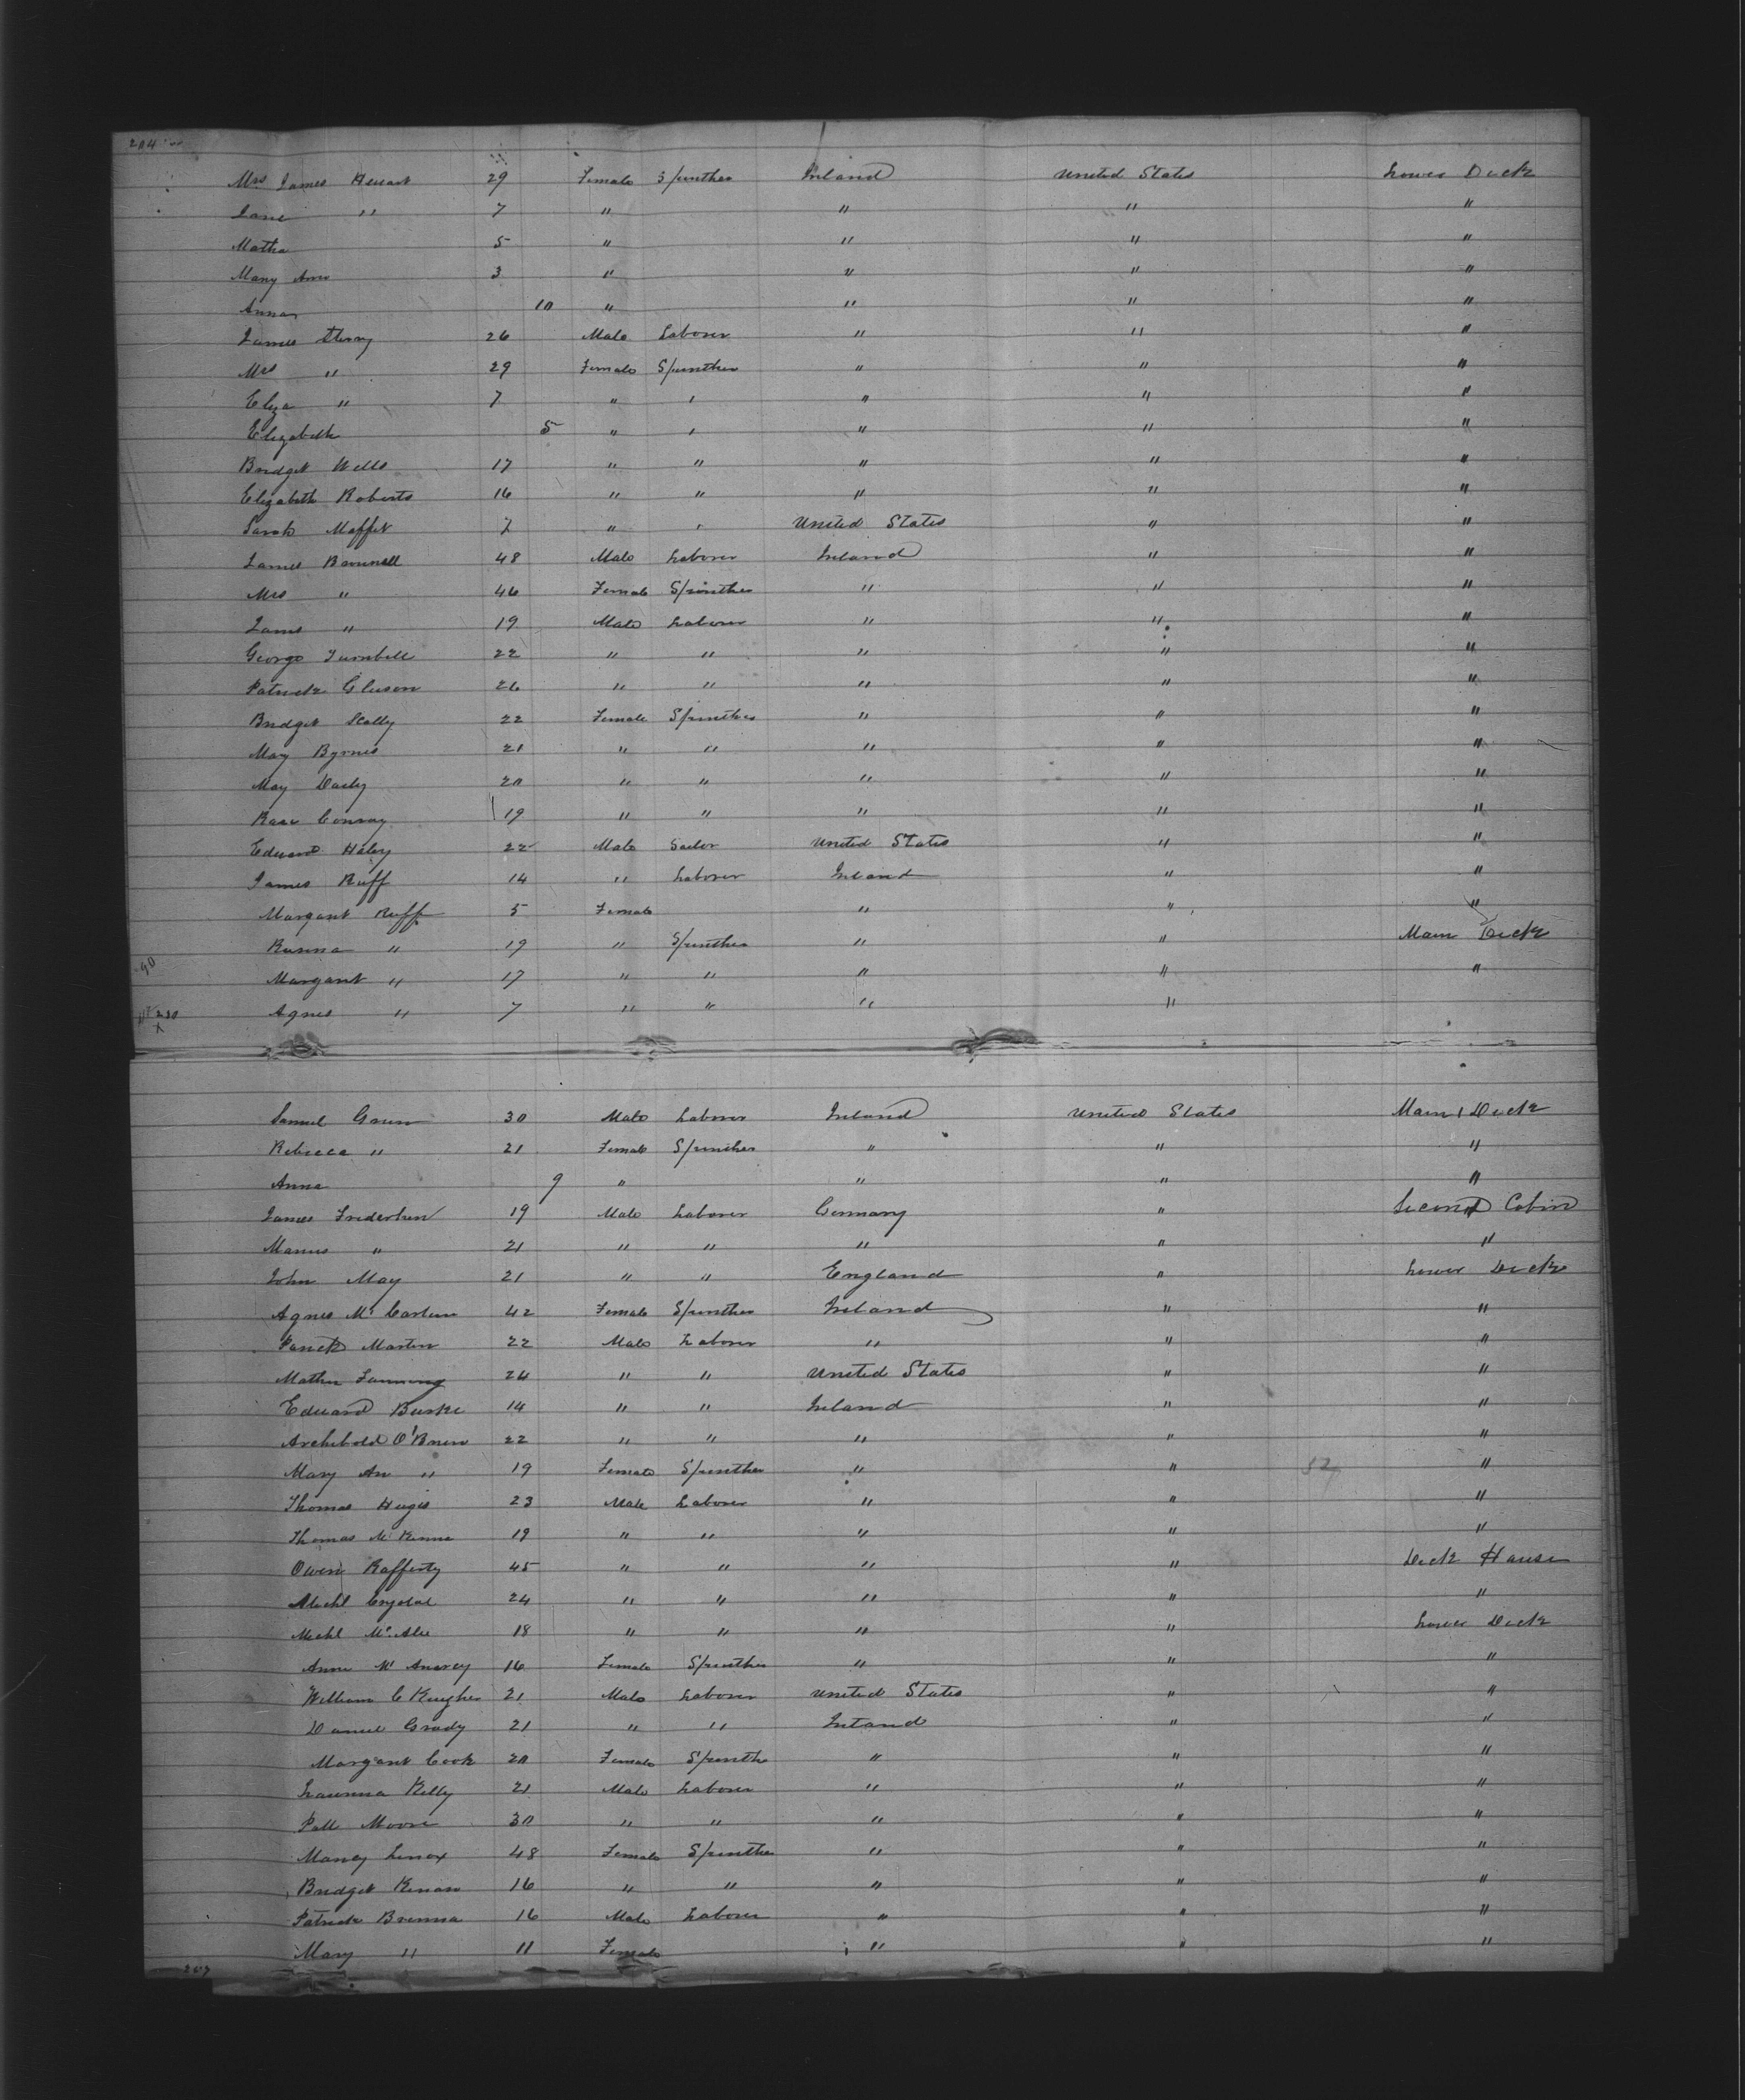 204
Mrs James Heuart 29 Female Spinther Ireland United States Lower Deck
Jane " 7 " " " "
Matha 5 " " " "
Mary Ann 3 " " " "
Anna 10 " " " "
James Sterny 26 Male Laborer " " "
Mrs " 29 Female Spinther " " "
Eliza " 7 " " " " "
Elizabeth 5 " " " " "
Bridget Wells 17 " " " " "
Elizabeth Roberts 16 " " " " "
Sarah Moffet 7 " " United States " "
James Brounell 48 Male Laborer Ireland " "
Mrs " 46 Female Spinther " " "
James " 19 Male Laborer " " "
George Turnbell 22 " " " " "
Patrick Gleeson 26 " " " " "
Bridget Scally 22 Female Spinther " " "
May Byrnes 21 " " " " "
May Daily 20 " " " " "
Rose Conray 19 " " " " "
Edward Haley 22 Male Sailor United States " "
James Ruff 14 " Laborer Ireland " "
Margaret Ruff 5 Female " " "
" 19 " Spinther " " Main Deck
Margaret " 17 " " " " "
Agnes " 7 " " " "
Samuel Green 30 Male Laborer Ireland United States Main Deck
Rebecca " 21 Female Spinther " " "
Anna 9 " " " "
James Frederken 19 Male Laborer Germany " Second Cabin
Marius " 21 " " " " "
John May 21 " " England " Lower Deck
Agnes Mc Carlein 42 Female Spinther Ireland " "
Martin 22 Male Laborer " " "
Mathew Fanning 24 " " United States " "
Edward Burke 14 " " Ireland " "
Archibold O'Brien 22 " " " " "
Mary An " 19 Female Spinther " " "
Thomas Huges 23 Male Laborer " " "
Thomas Mc Kenna 19 " " " " "
Owen Rafferty 45 " " " " Deck House
Michl Crystal 24 " " " " "
Michl Mc Alee 18 " " " " Lower Deck
Anne Mc Anarey 16 Female Spinther " " "
William C Kughes 21 Male Laborer United States " "
Daniel Grady 21 " " Ireland " "
Margaret Cook 20 Female Spinthe " " "
Kelly 21 Male Laborer " " "
Patt Moore 30 " " " " "
Mancy Lenox 48 Female Spinther " " "
Bridget Kenan 16 " " " " "
Patrick Brenna 16 Male Laborer " " "
Mary " 11 Female " " "